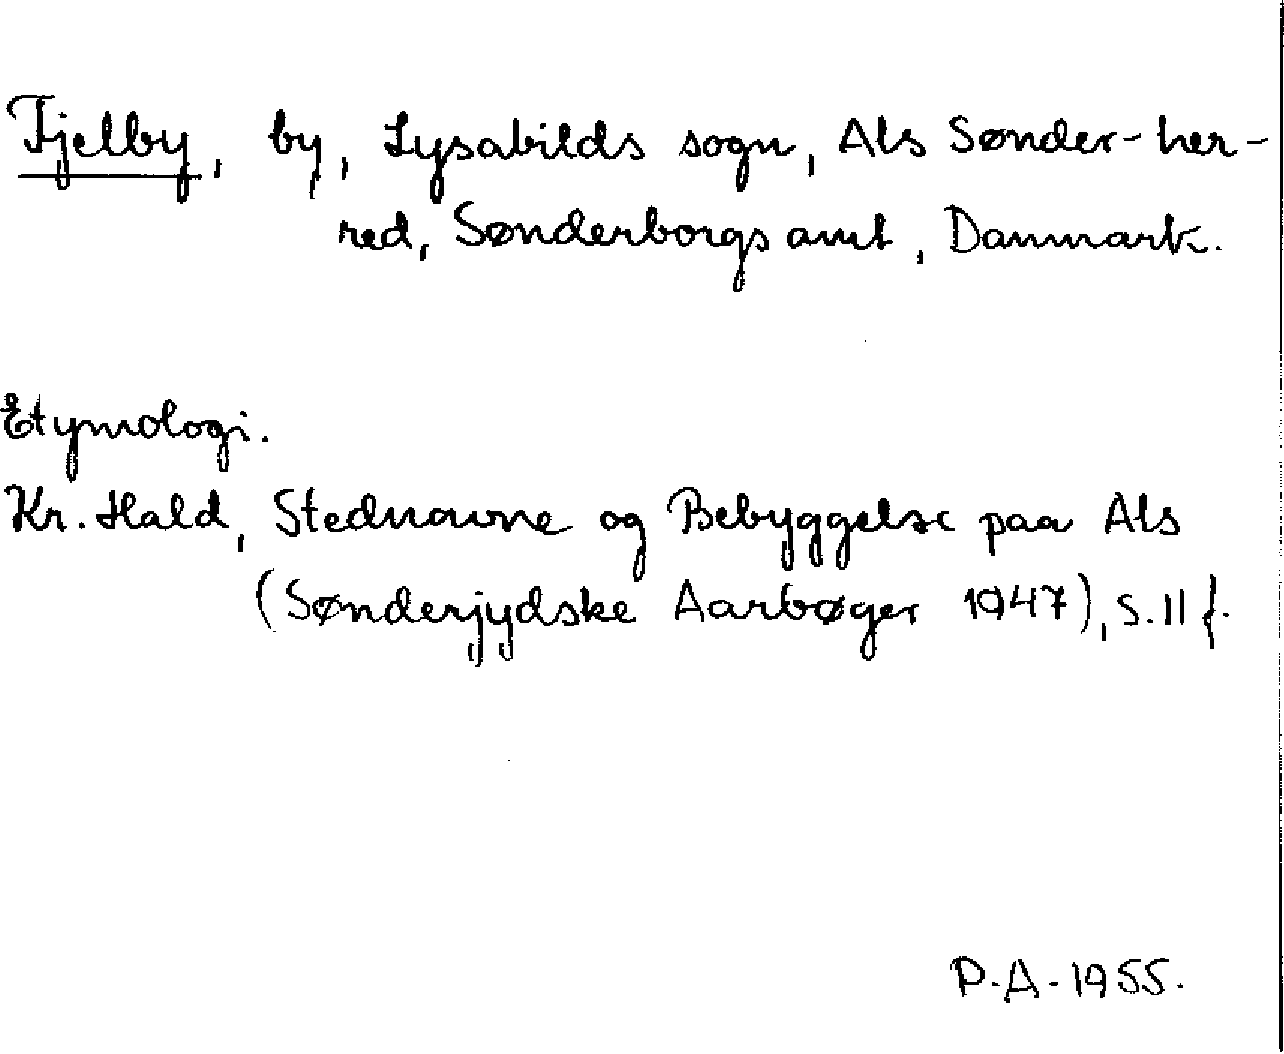 Fjelby, by, Lysabilds sogn, Als Sønder-her-
red, Sønderborgs amt, Danmark.
Etymologi.
Kr. Hald, Stednavne og Bebyggelse paa Als
(Sønderjydske Aarbøger 1947), s. 11 f.
P.A. 1955.